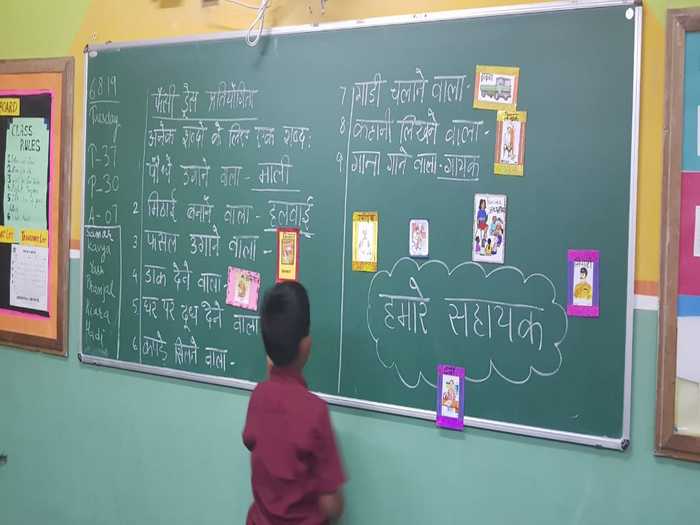 CLASS
RULES
6 8 19
Tuesday
T-37
P-30
A-07
Samar
Kavya
Yash
Pranjal
Kiara
Hadi
फैंसी ड्रैस प्रतियोगिता
अनेक शब्दों के लिए एक शब्द:
पौधे उगाने वाला - माली
2 मिठाई बनाने वाला - हलवाई
3 फसल उगाने वाला -
4 डाक देने वाला
5 घर पर दूध देने वाला
6 कपड़े सिलने वाला -
7 गाडी चलाने वाला -
8 कहानी लिखने वाला -
9 गाना गाने वाला - गायक
हमारे सहायक